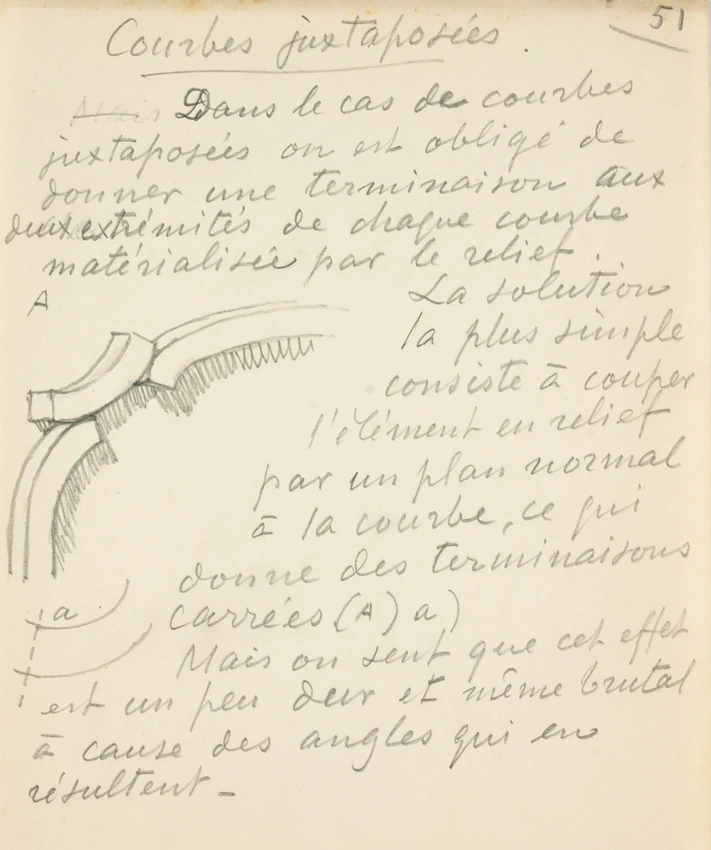 51
Courbes juxtaposées.
Mais Dans le cas de courbes
juxtaposées on est obligé de
donner une terminaison aux
deux extrémités de chaque courbe
matérialisée par le relief.
A
La solution
la plus simple
consiste à couper
l'élément en relief
par un plan normal
à la courbe, ce qui
donne des terminaisons
a
carrées (A) a)
Mais on sent que cet effet
est un peu dur et même brutal
à cause des angles qui en
résultent -